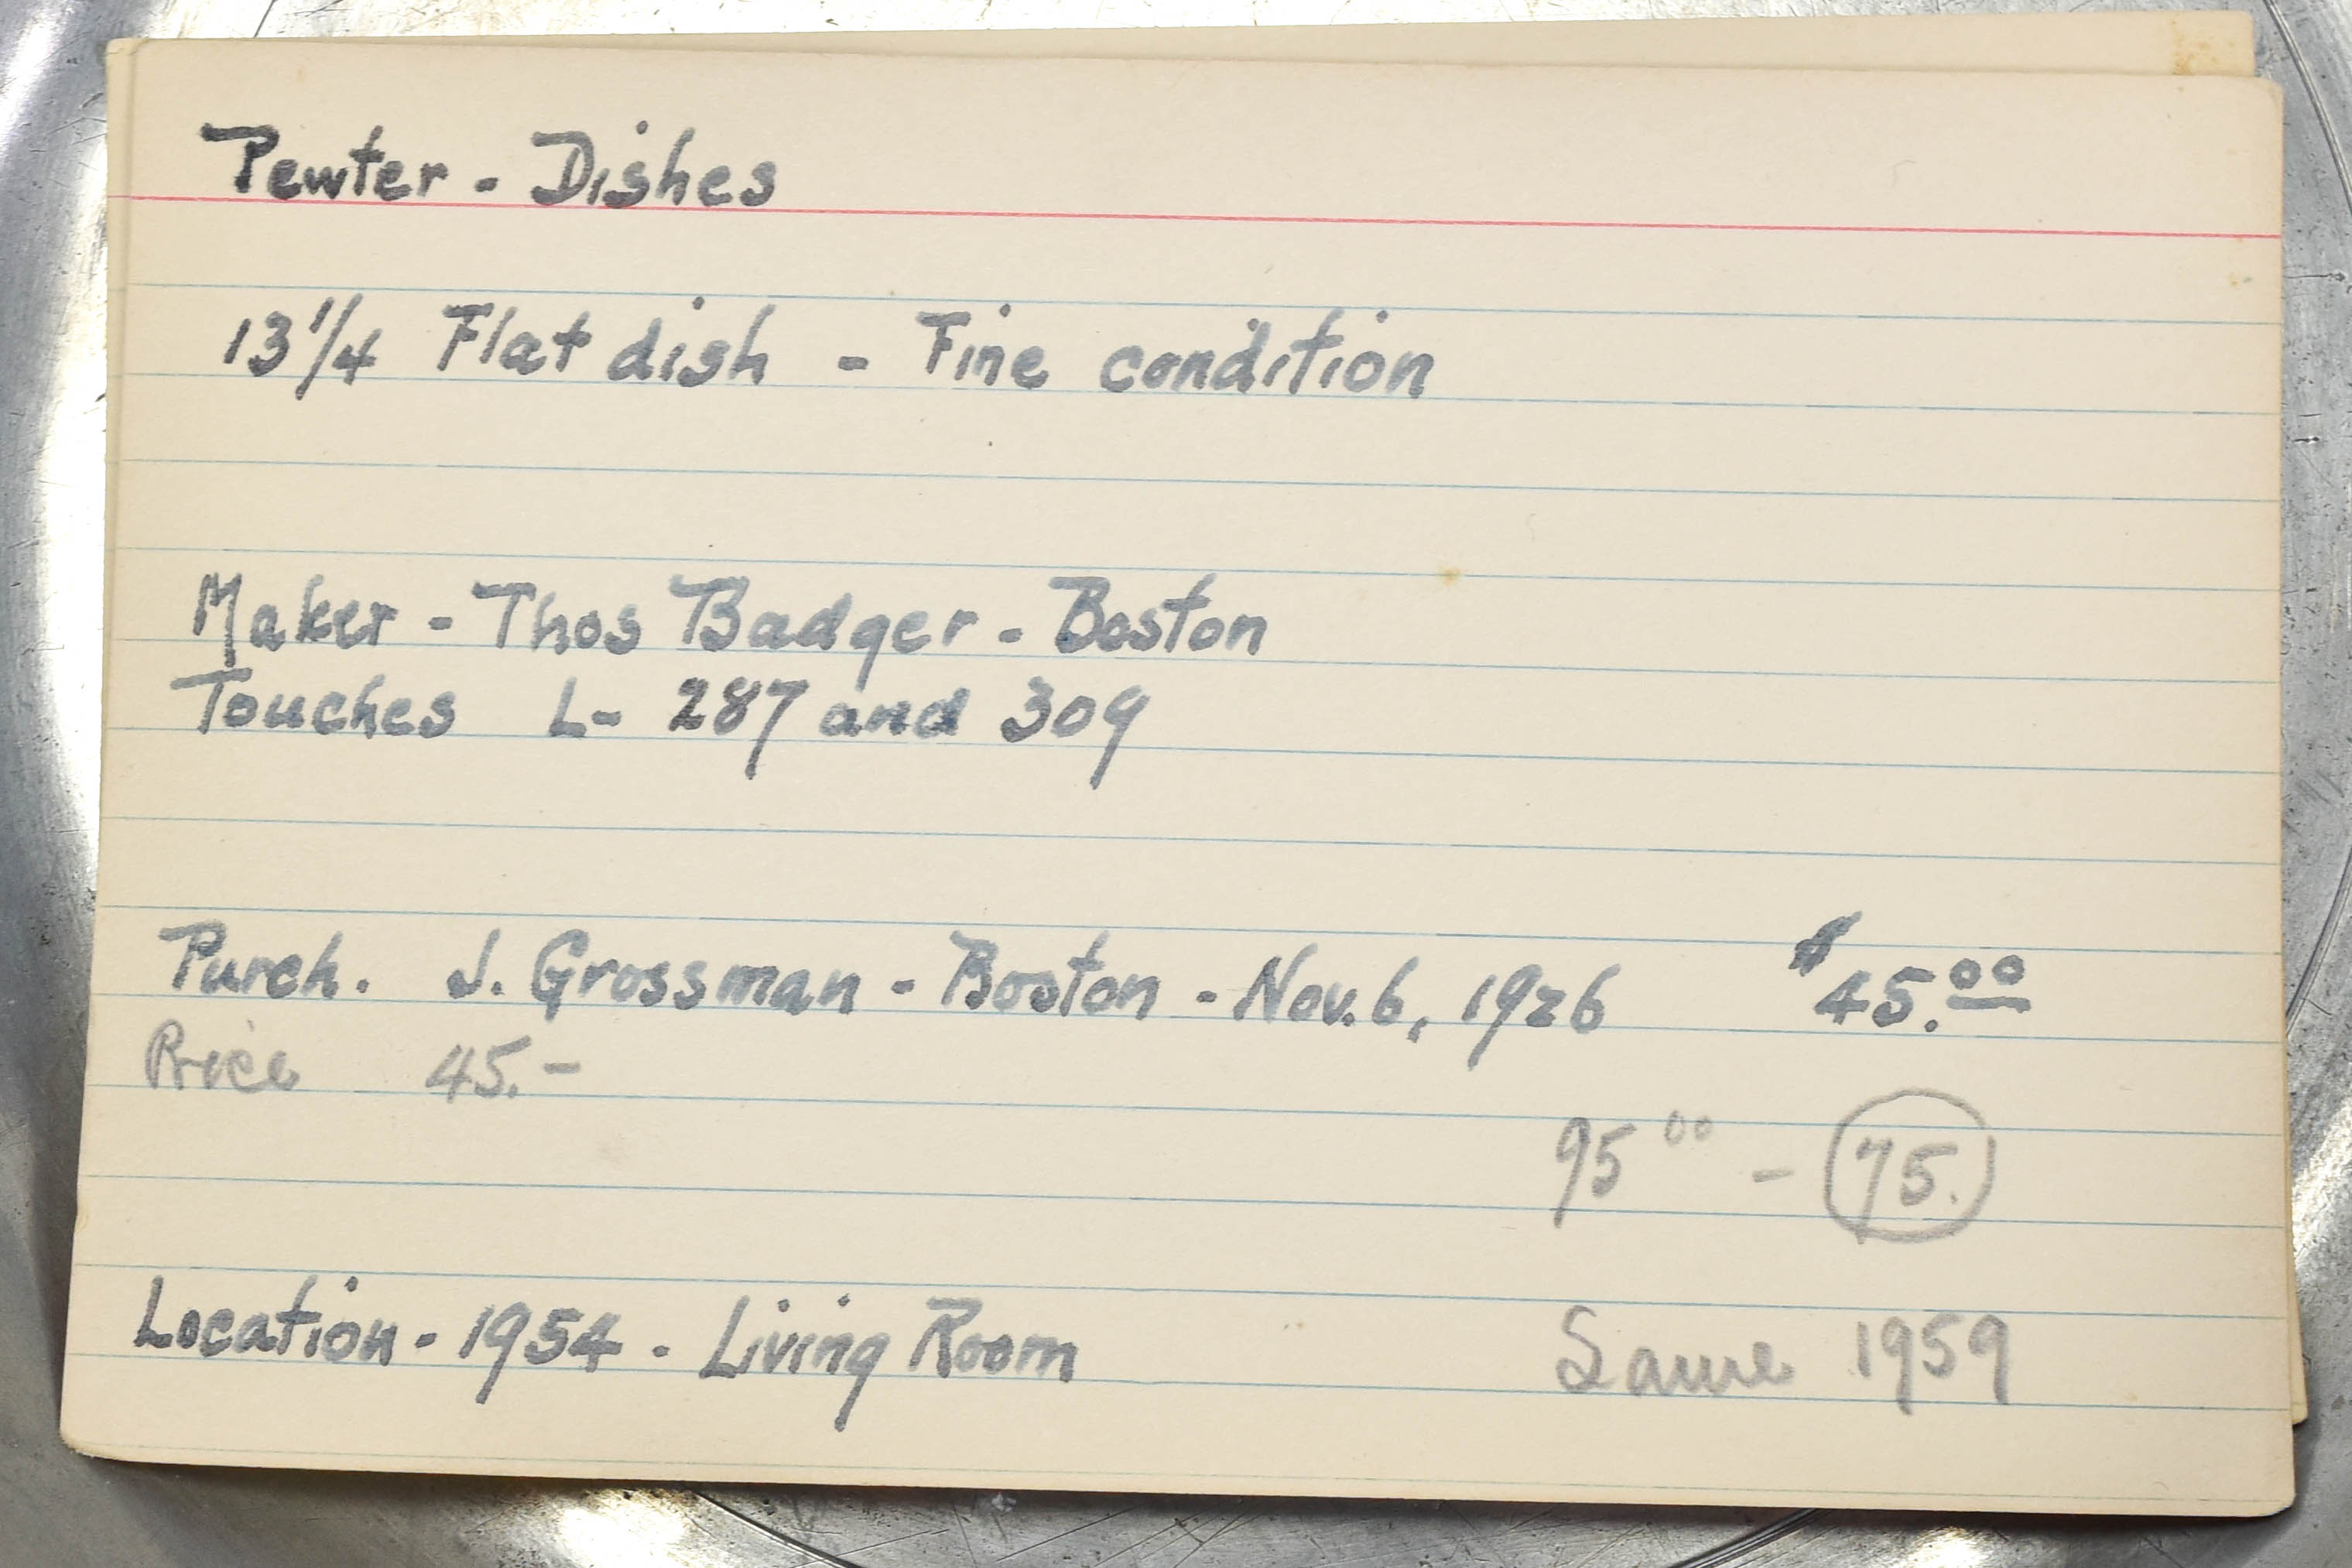 Pewter - Dishes
13 1/4 Flat dish - Fine condition
Maker - Thos Badger - Boston
Touches L- 287 and 309
Purch. J. Grossman - Boston - Nov. 6, 1926 $45.00
Price 45.-
95 00 - 75.
Location - 1954 - Living Room Same 1959